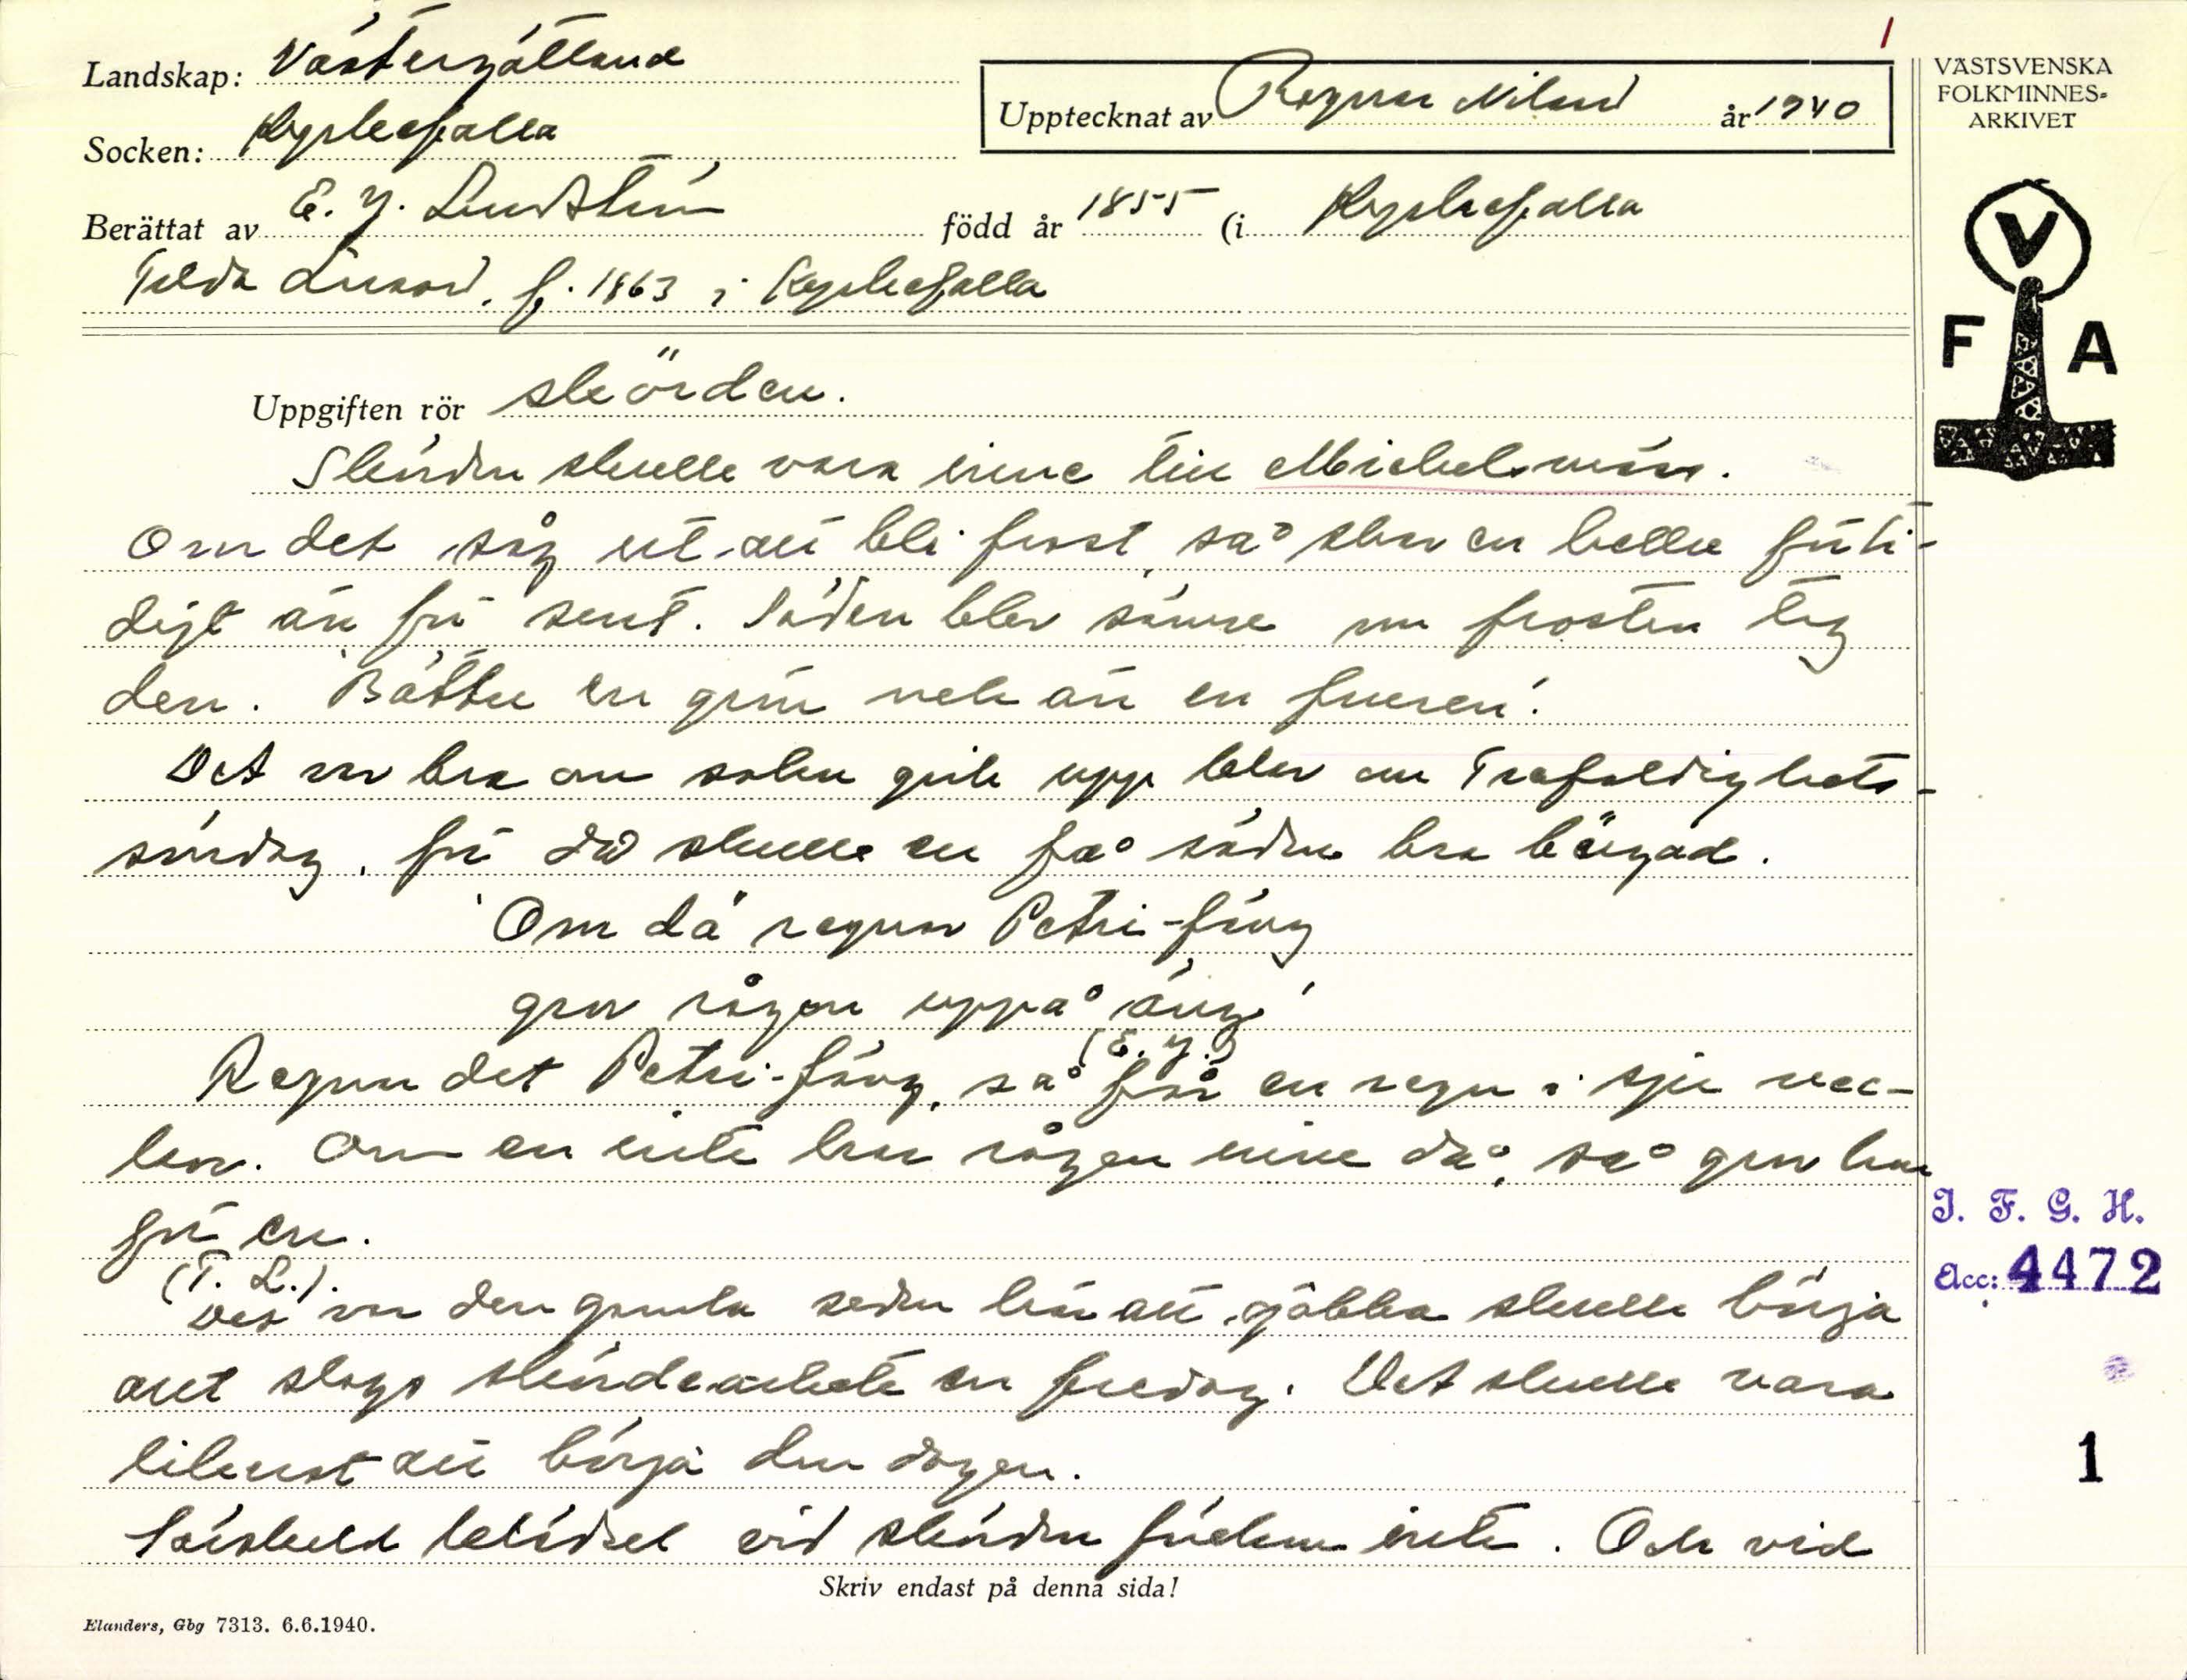 1
Landskap: Västergötland
Socken: Kyrkefalla
Upptecknat av Ragnar Nilsson år 1940
Berättat av E. G. Lundstén född år 1855 (i Kyrkefalla
Tilda Larsson, f. 1863 i Kyrkefalla
VÄSTSVENSKA
FOLKMINNES-
ARKIVET
V
F A
Uppgiften rör skörden.
Skörden skulle vara inne till Mickelsmäss.
Om det såg ut att bli frost, så skar en heller för ti-
digt än för sent. Säden blev sämre om frosten tog
den. "Bättre en grön nek än en frusen".
Det var bra om solen gick upp klar om Trefaldighets-
söndag, för då skulle en få säden bra bärgad.
"Om dä regnar Petri-fäng
gror rågen uppå äng"
(E. G.)
Regnar det Petri-fäng, så får en regn i sju vec-
kor. Om en inte har rågen inne då, så gror han
för en.
(T. L.)
Det var den gamla seden här att gubba skulle börja
allt slags skördearbete en fredag. Det skulle vara
likast att börja den dagen.
Särskild klädsel vid skörden förekom inte. Och vid
Skriv endast på denna sida!
Elanders, Gbg 7313. 6.6.1940.
I. F. G. H.
Acc: 4472
1